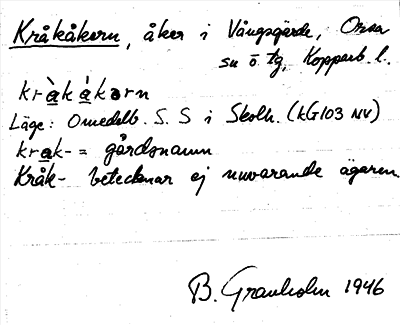 Kråkåkern, åker i Vångsgärde, Orsa
sn ö. tg, Kopparb. l.
kràkàkərn
Läge: Omedelb. S. S i Skolh. (kG103 NV)
krak- = gårdsnamn
Kråk- betecknar ej nuvarande ägaren.
B. Granholm 1946